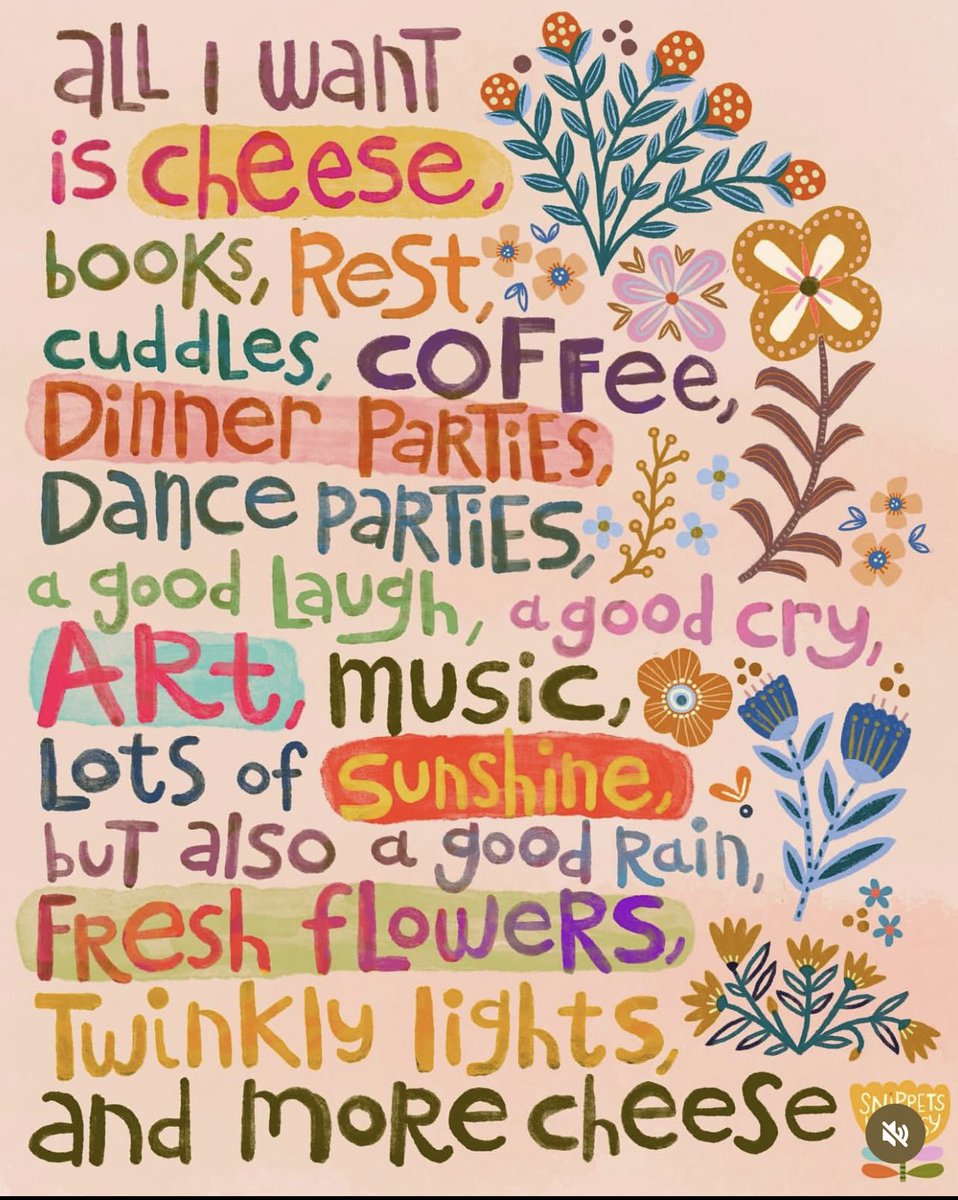 all I want
is cheese,
books, Rest,
cuddles, coffee,
Dinner Parties,
Dance parties,
a good laugh, a good cry,
Art, music,
Lots of sunshine,
but also a good Rain,
Fresh flowers,
Twinkly lights,
and more cheese
SNIPPETS